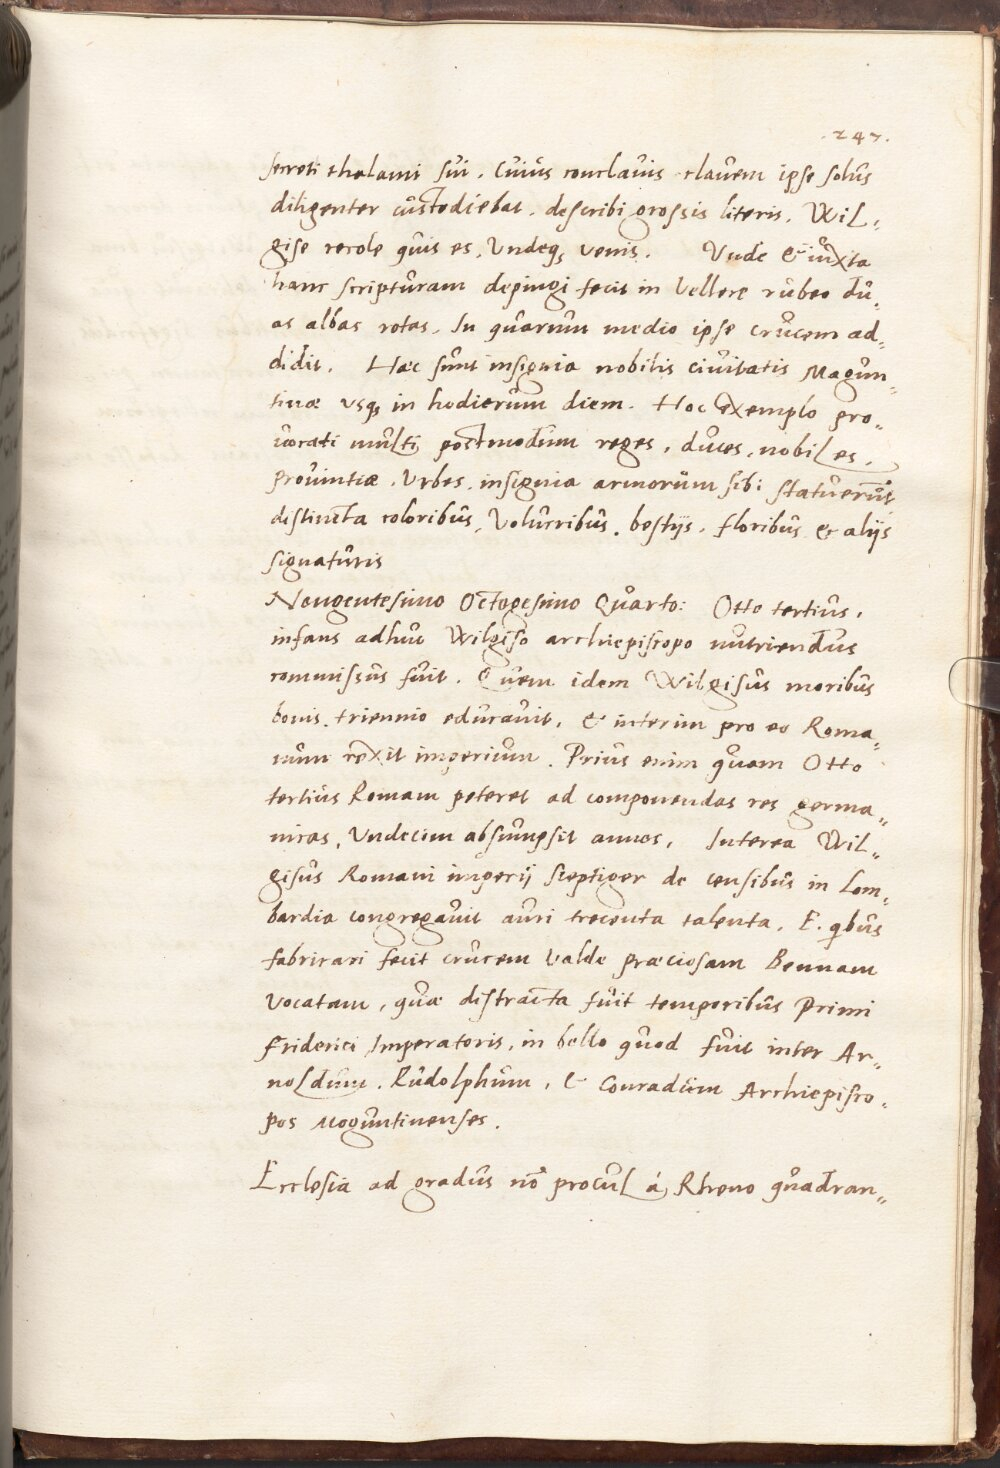 .247.
secreti thalami sui. Cuius conclauis clauem ipse solus
diligenter custodiebat. describi grossis literis. Wil-
gise recole quis es, Undeq, venis. Unde & iuxta
hanc scripturam depingi fecit in Vellere rubeo du-
as albas rotas. In quarum medio ipse Crucem ad-
didit. Hæc sunt insignia nobilis ciuitatis Magun-
tinæ vsq, in hodierum diem. Hoc exemplo pro-
uocati multi postmodum reges, duces, nobiles,
prouintiæ, Vrbes, insignia armorum sibi statuerūt
distincta coloribus, Volucribus, bestijs, floribus & alijs
signaturis
Nongentesimo Octogesimo Quarto: Otto tertius,
infans adhuc Wilgiso archiepiscopo nutriendus
commissus fuit. Quem idem Wilgisus moribus
bonis triennio educauit, & interim pro eo Roma-
num rexit imperium. Prius enim quam Otto
tertius Romam peteret ad componendas res germa-
nicas, Undecim absumpsit annos, Interea Wil-
gisus Romani imperij sceptiger de censibus in Lom-
bardia congregauit auri trecenta talenta. E. qibus
fabricari fecit crucem valde præciosam Bennam
vocatam, quæ distracta fuit temporibus Primi
friderici Imperatoris, in bello quod fuit inter Ar-
noldum, Rudolphum, & Conradum Archiepisco-
pos Moguntinenses.
Ecclesia ad gradus nō procul á Rheno quadran-